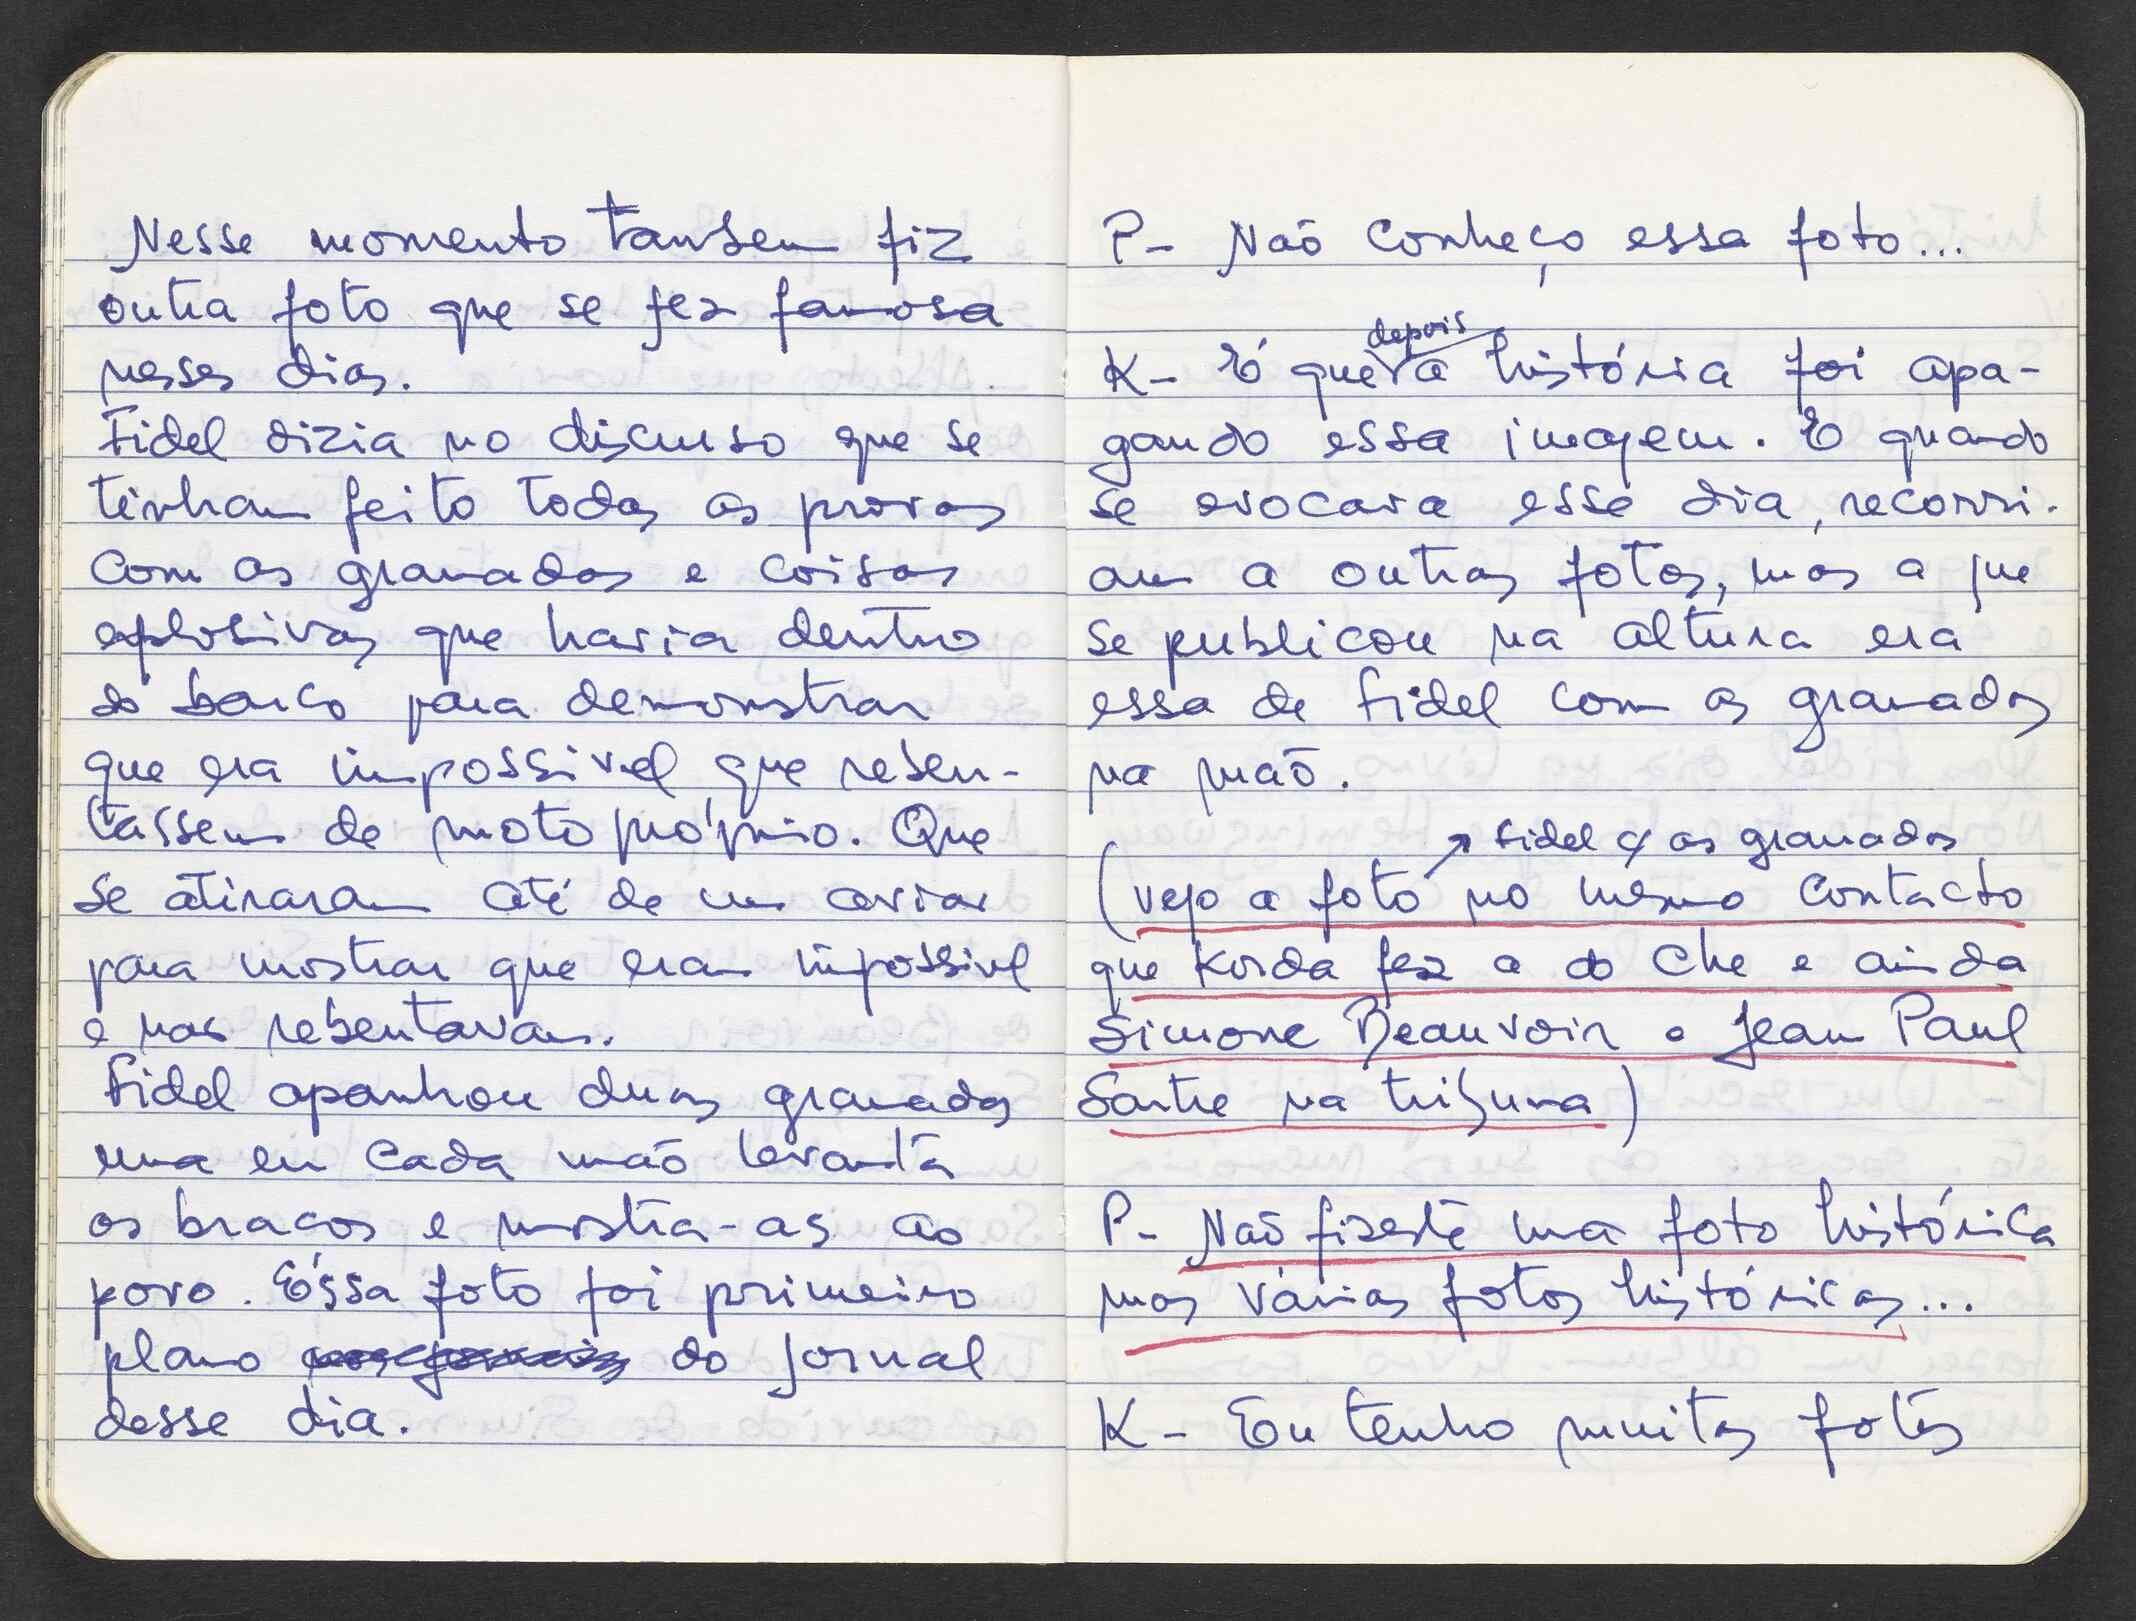 Nesse momento tambem fiz
outra foto que se fez famosa
nesses dias.
Fidel dizia no discurso que se
tinham feito todas as provas
com as granadas e coisas
explosivas que havia dentro
do barco para demonstrar
que era impossivel que reben-
tassem de moto próprio. Que
se atiraram até de um aviar
para mostrar que eram impossivel
e nas rebentavam.
Fidel apanhou duas granadas
uma em cada mão levanta
os braços e mostra-as ao
povo. Éssa foto foi primeiro
plano do jornal
desse dia.
P- Não conheço essa foto...
depois
K- É que a história foi apa-
gando essa imagem. E quando
se evocava esse dia, recorri-
am a outras fotos, mas a que
se publicou na altura era
essa de Fidel com as granadas
na mão.
↗ Fidel c/ as granadas
(vejo a foto no mesmo contacto
que Korda fez a do Che e ainda
Simone Beauvoir e Jean Paul
Sartre na tribuna)
P- Não fizeste uma foto histórica
mas várias fotos históricas...
K- Eu tenho muitas fotos